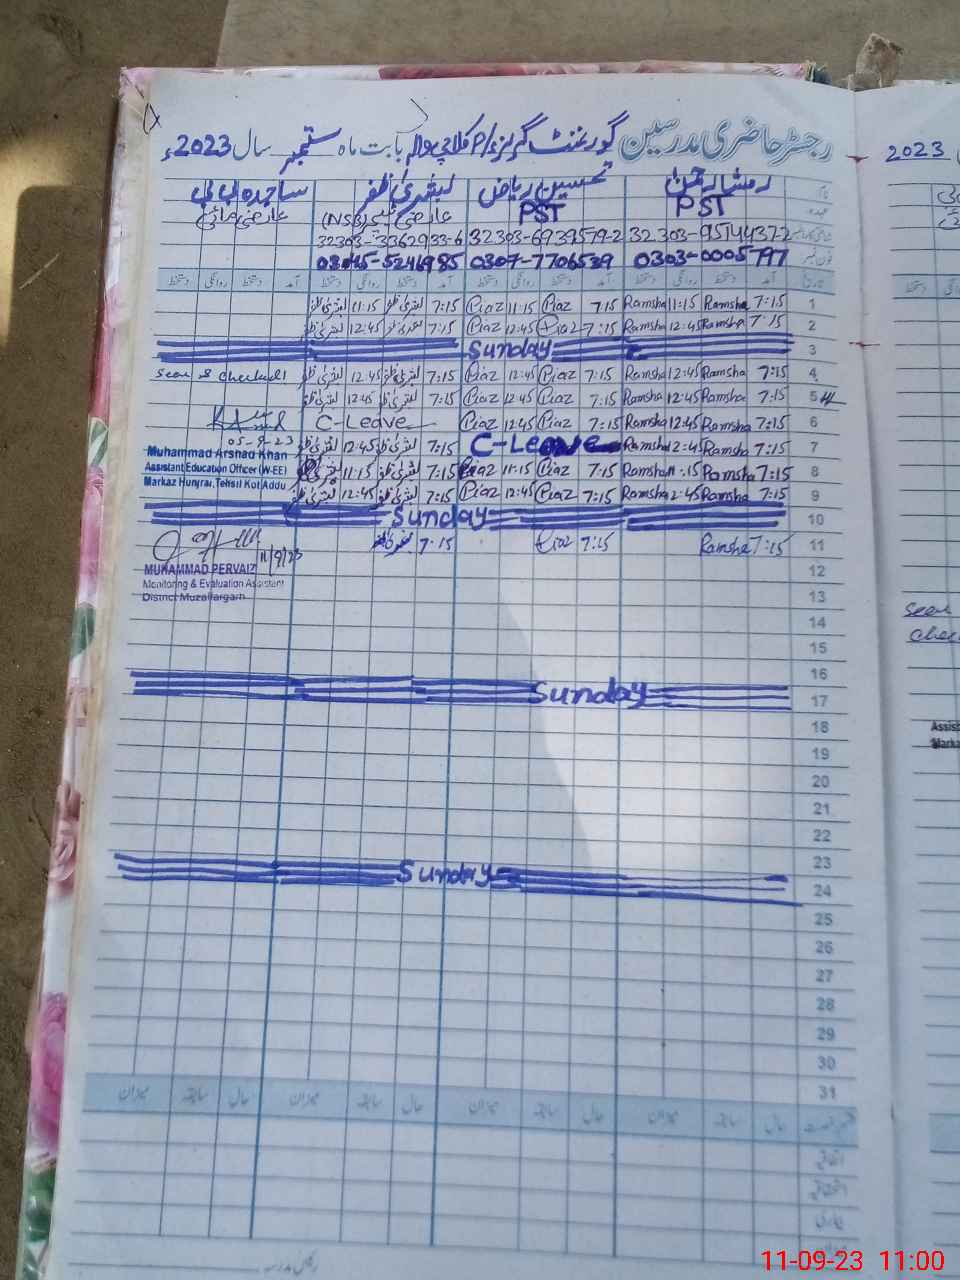 رجسٹر حاضری مدرسین گورنمنٹ گرلز P/S کلاچی والہ بابت ماہ ستمبر سال 2023ء
2023
رمشا رحمٰن تحسین ریاض بشریٰ ظفر ساجدہ بی بی
PST PST عارضی (NSB) عارضی
32303-3362933-6 32303-6939579-2 32303-9514437-2
0303-0005797 0307-7706539 0345-5246985
تاریخ آمد دستخط روانگی دستخط آمد دستخط روانگی دستخط آمد دستخط روانگی دستخط آمد دستخط روانگی دستخط
1 7:15 Ramsha 11:15 Ramsha 7:15 Riaz 11:15 Riaz 7:15 بشریٰ ظفر 11:15 بشریٰ ظفر
2 7:15 Ramsha 12:45 Ramsha 7:15 Riaz 12:45 Riaz 7:15 بشریٰ ظفر 12:45 بشریٰ ظفر
3 Sunday
4 7:15 Ramsha 12:45 Ramsha 7:15 Riaz 12:45 Riaz 7:15 بشریٰ ظفر 12:45 بشریٰ ظفر Seen & checked
5 7:15 Ramsha 12:45 Ramsha 7:15 Riaz 12:45 Riaz 7:15 بشریٰ ظفر 12:45 بشریٰ ظفر
6 7:15 Ramsha 12:45 Ramsha 7:15 Riaz 12:45 Riaz C-Leave
05-9-23
7 7:15 Ramsha 12:45 Ramsha C-Leave 7:15 بشریٰ ظفر 12:45 بشریٰ ظفر
Muhammad Arshad Khan
Assistant Education Officer (W-EE)
Markaz Hunjrai, Tehsil Kot Addu
8 7:15 Ramsha 11:15 Ramsha 7:15 Riaz 11:15 Riaz 7:15 بشریٰ ظفر 11:15 بشریٰ ظفر
9 7:15 Ramsha 12:45 Ramsha 7:15 Riaz 12:45 Riaz 7:15 بشریٰ ظفر 12:45 بشریٰ ظفر
10 Sunday
11 7:15 Ramsha 7:15 Riaz 7:15 بشریٰ ظفر
11/9/23
MUHAMMAD PERVAIZ
Monitoring & Evaluation Assistant
District Muzaffargarh
12
13
14
15
16
17 Sunday
18
19
20
21
22
23
24 Sunday
25
26
27
28
29
30
31
حال سابقہ میزان حال سابقہ میزان حال سابقہ میزان حال سابقہ میزان
اتفاقیہ
استحقاقیہ
بیماری
میزان
Seen
Assis
Markaz
11-09-23 11:00